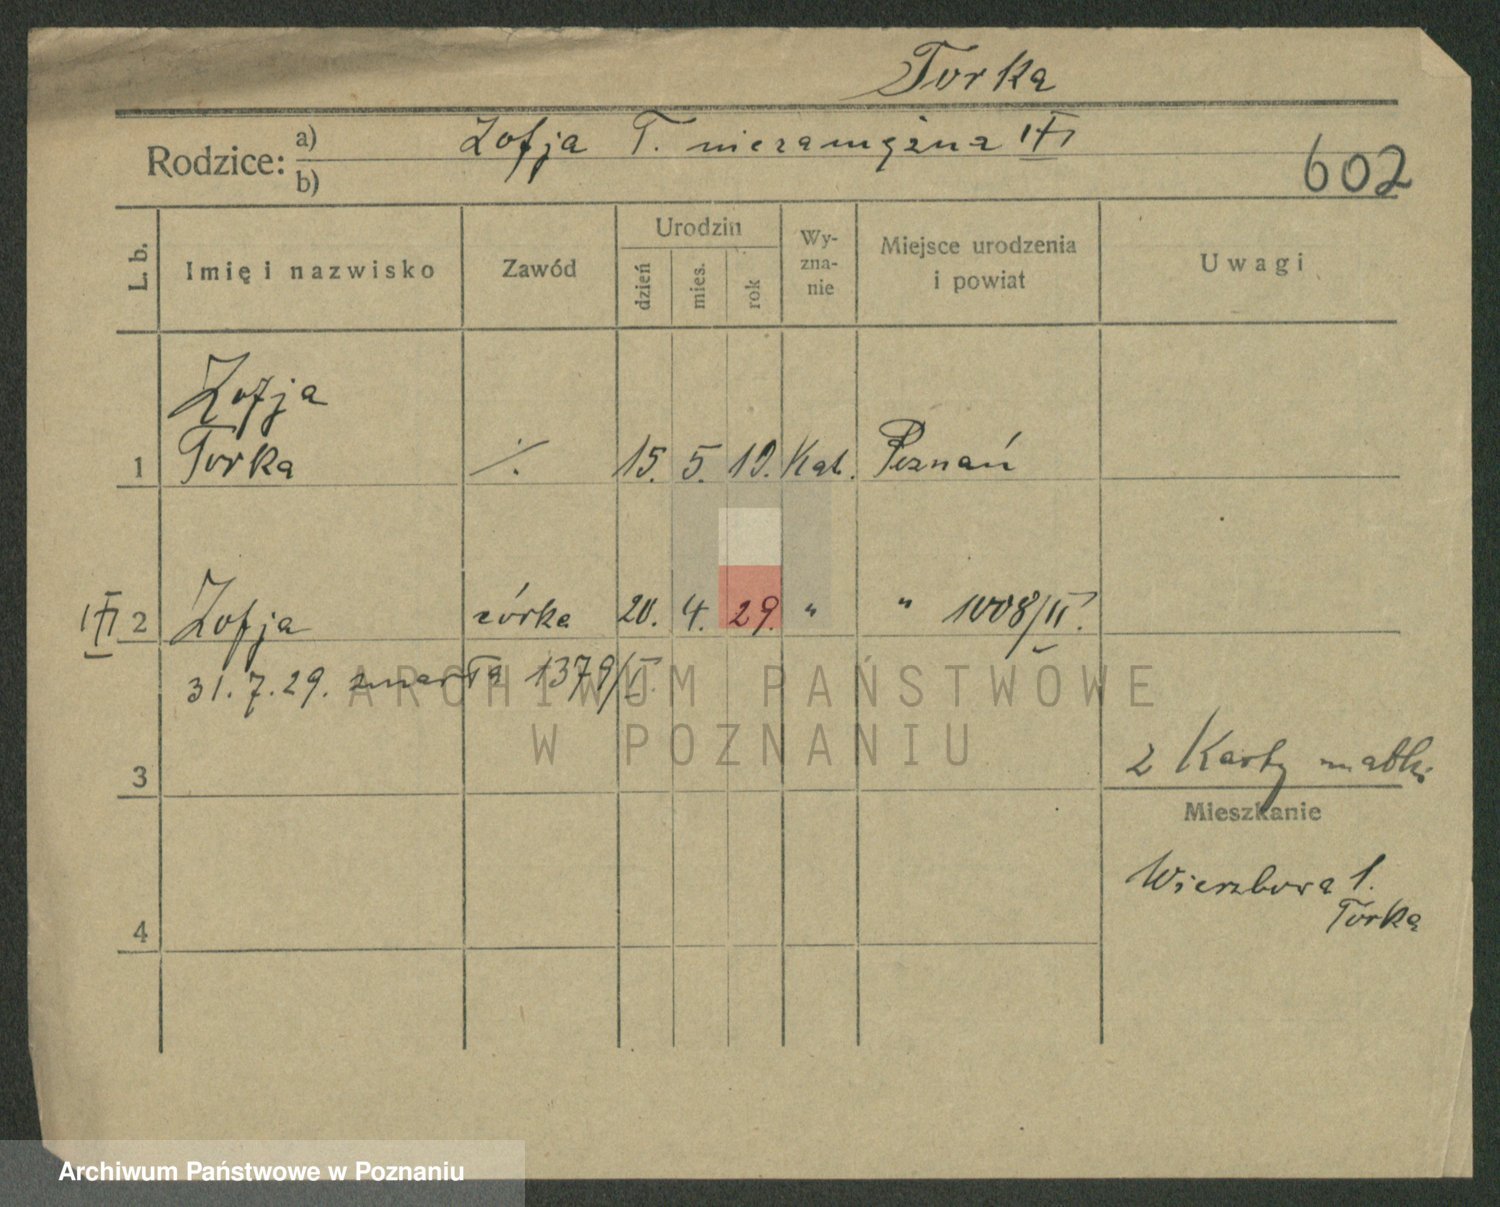 Torka
Rodzice: a) Zofja T. niezamężna
b)
602
L. b. Imię i nazwisko Zawód Urodzin dzień mies. rok Wyzna-nie Miejsce urodzenia i powiat Uwagi
Zofja
1 Torka ./. 15. 5. 19. Kat. Poznań
2 Zofja córka 20. 4. 29. " " 1008/II.
31.7.29. zmarła 1379/II.
ARCHIWUM PAŃSTWOWE
W POZNANIU
2 Karty matki
3
Mieszkanie
Wierzbowa 1.
Torka
4
Archiwum Państwowe w Poznaniu